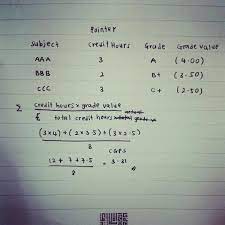 Pointer
Subject Credit Hours Grade Grade Value
AAA 3 A (4.00)
BBB 2 B+ (3.50)
CCC 3 C+ (2.50)
Σ credit hours x grade value
£ total credit hours
(3x4)+(2x3.5)+(3x2.5)
8
CGPS
12 + 7 + 7.5 = 3.31
8